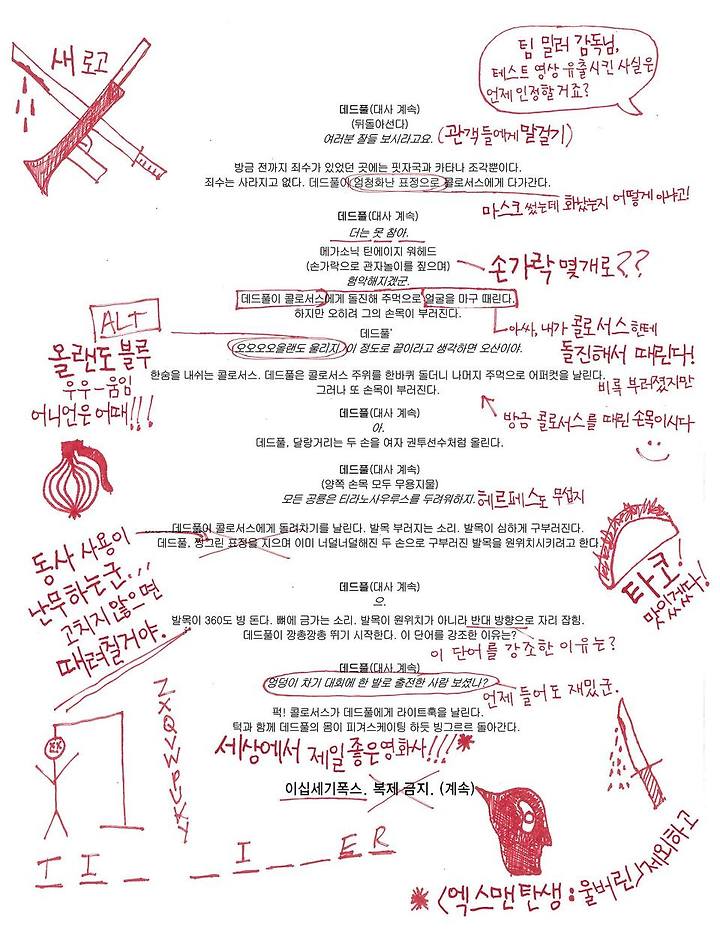 새 로고
팀 밀러 감독님,
테스트 영상 유출시킨 사실은
언제 인정할거죠?
데드풀(대사 계속)
(뒤돌아선다)
여러분 잘들 보시라고요. (관객들에게 말걸기)
방금 전까지 죄수가 있었던 곳에는 핏자국과 카타나 조각뿐이다.
죄수는 사라지고 없다. 데드풀이 엄청화난 표정으로 콜로서스에게 다가간다.
마스크 썼는데 화났는지 어떻게 아냐고!
데드풀(대사 계속)
더는 못 참아.
메가소닉 틴에이지 워헤드
(손가락으로 관자놀이를 짚으며)
손가락 몇개로??
험악해지겠군.
데드풀이 콜로서스에게 돌진해 주먹으로 얼굴을 마구 때린다.
하지만 오히려 그의 손목이 부러진다.
ALT
올랜도 블루
우우-움임
어니언은 어때!!!
아싸, 내가 콜로서스한테
돌진해서 때린다!
비록 부러졌지만
데드풀'
오오오오올랜도 울리지, 이 정도로 끝이라고 생각하면 오산이야.
한숨을 내쉬는 콜로서스. 데드풀은 콜로서스 주위를 한바퀴 돌더니 나머지 주먹으로 어퍼컷을 날린다.
그러나 또 손목이 부러진다.
방금 콜로서스를 때린 손목이시다
데드풀(대사 계속)
아.
데드풀, 달랑거리는 두 손을 여자 권투선수처럼 올린다.
데드풀(대사 계속)
(양쪽 손목 모두 무용지물)
모든 공룡은 티라노사우루스를 두려워하지. 헤르페스도 무섭지
데드풀이 콜로서스에게 돌려차기를 날린다. 발목 부러지는 소리. 발목이 심하게 구부러진다.
데드풀, 찡그린 표정을 지으며 이미 너덜너덜해진 두 손으로 구부러진 발목을 원위치시키려고 한다.
동사 사용이
난무하는군...
고치지 않으면
때려칠거야.
타코!
맛있겠다!
데드풀(대사 계속)
으.
발목이 360도 빙 돈다. 뼈에 금가는 소리. 발목이 원위치가 아니라 반대 방향으로 자리 잡힘.
데드풀이 깡총깡총 뛰기 시작한다. 이 단어를 강조한 이유는?
이 단어를 강조한 이유는?
데드풀(대사 계속)
엉덩이 차기 대회에 한 발로 출전한 사람 보셨나?
언제 들어도 재밌군.
퍽! 콜로서스가 데드풀에게 라이트훅을 날린다.
턱과 함께 데드풀의 몸이 피겨스케이팅 하듯 빙그르르 돌아간다.
세상에서 제일 좋은 영화사!!!*
이십세기폭스. 복제 금지. (계속)
NXQVWPUKY
T I _ _ _ I _ _ _ E R
* <엑스맨 탄생: 울버린> 제외하고